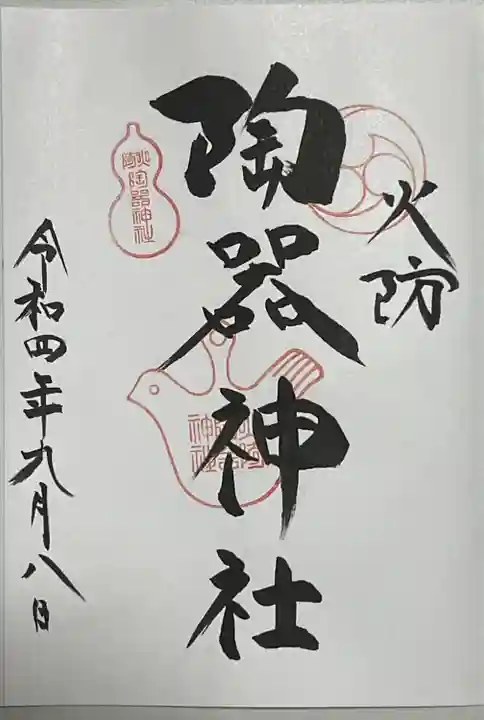 火防
陶器神社
令和四年九月八日
火防陶器神社
陶器神社